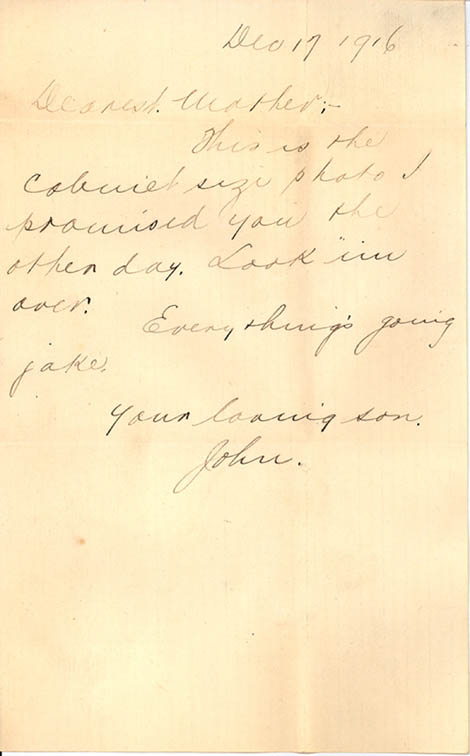 Dec 17 1916
Dearest Mother;-
This is the
cabinet size photo I
promised you the
other day. Look 'im
over.
Everything's going
jake.
Your loving son.
John.